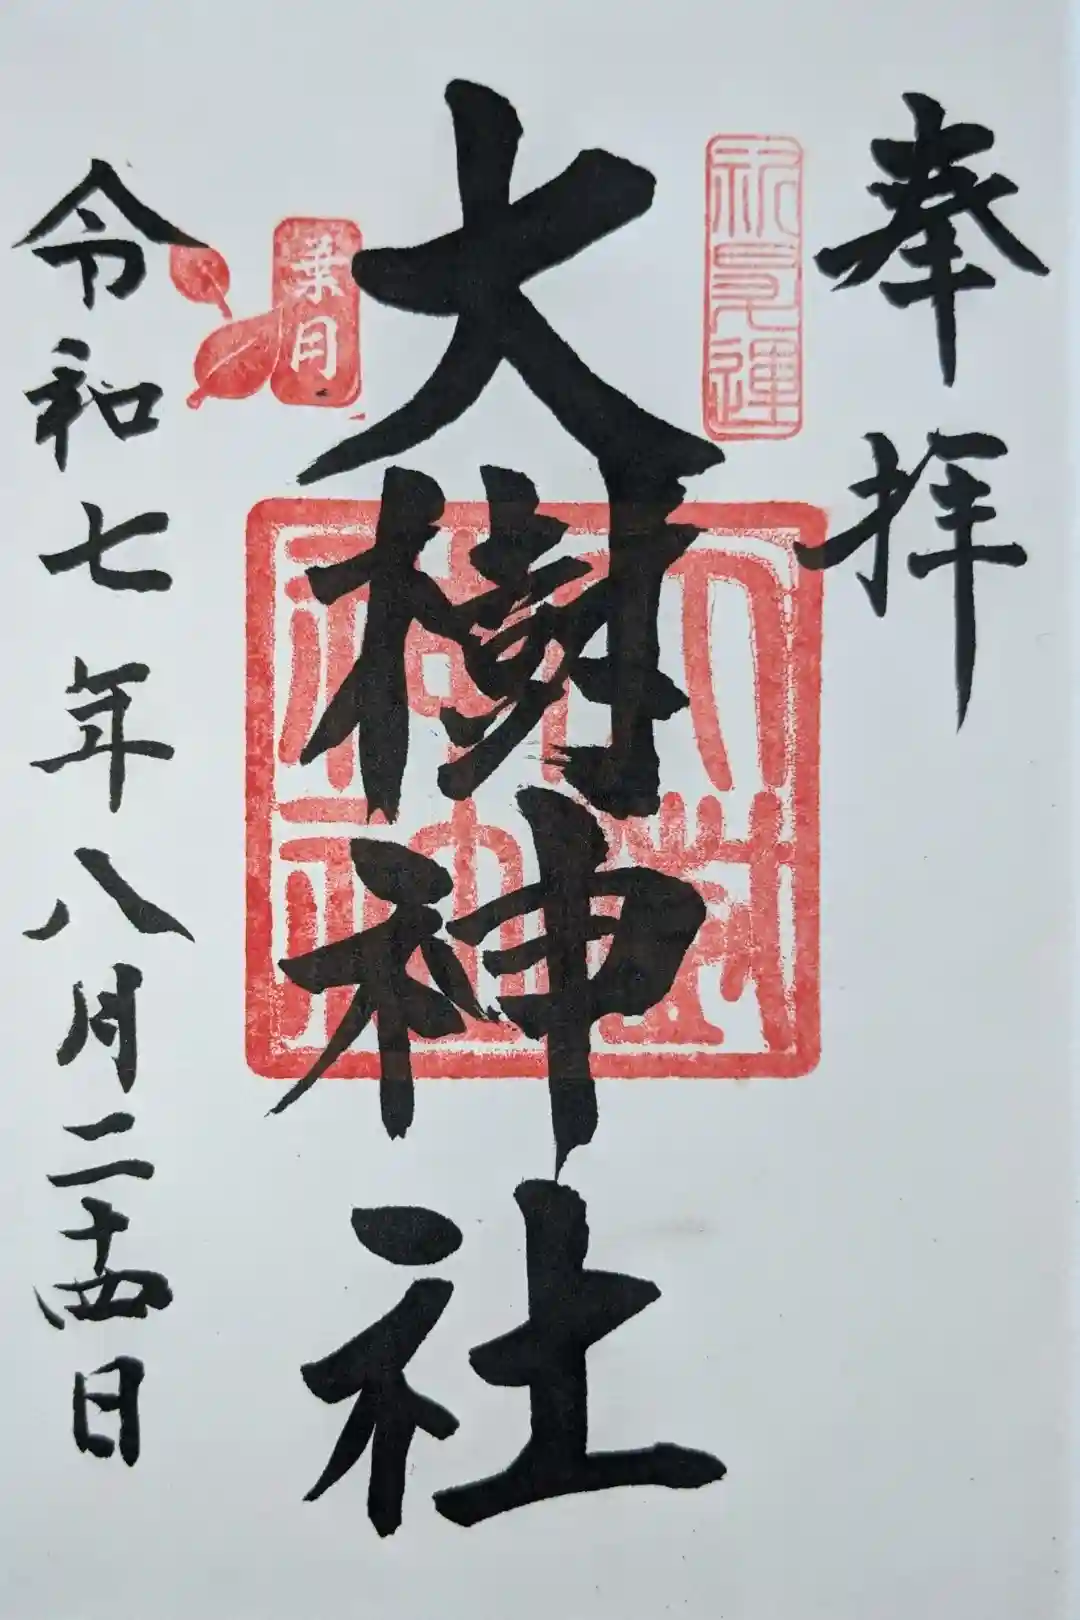 奉拝
祈開運
大樹神社
大樹神社
葉月
令和七年八月二十四日